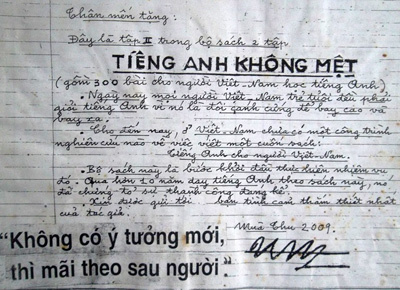 Thân mến tặng:
Đây là tập II trong bộ sách 2 tập
TIẾNG ANH KHÔNG MỆT
(gồm 300 bài cho người Việt-Nam học tiếng Anh)
- Ngày nay mọi người Việt-Nam trẻ tuổi đều phải
giỏi tiếng Anh vì nó là đôi cánh cứng để bay cao và
bay xa.
- Cho đến nay, ở Việt-Nam chưa có một công trình
nghiên cứu nào về việc viết một cuốn sách:
Tiếng Anh cho người Việt-Nam.
- Bộ sách này là bước khởi đầu thực hiện nhiệm vụ
đó. Qua hơn 10 năm dạy tiếng Anh theo sách này, nó
đã chứng tỏ sự thành công đáng kể.
- Xin được gửi tới bạn tình cảm thắm thiết nhất
của tác giả.
Mùa Thu 2009.
"Không có ý tưởng mới,
thì mãi theo sau người".